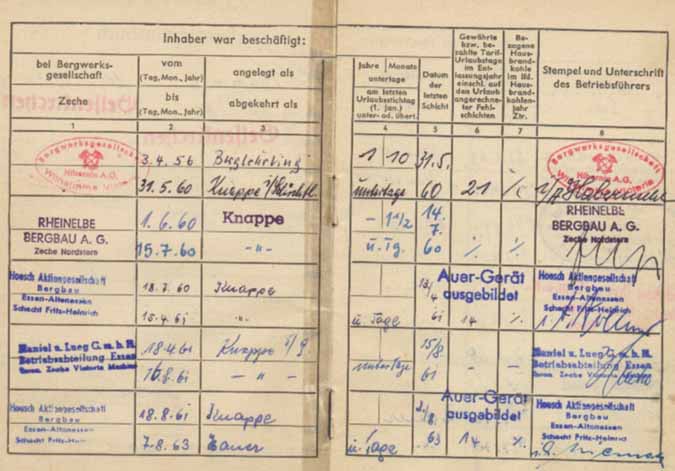 Inhaber war beschäftigt:
bei Bergwerks-
gesellschaft
Zeche
vom
(Tag, Mon., Jahr)
bis
(Tag, Mon., Jahr)
angelegt als
abgekehrt als
1
2
3
Jahre
Monate
untertage
am letzten
Urlaubsstichtag
(1. Jan.)
unter- od. übert.
Datum
der
letzten
Schicht
Gewährte
bzw. be-
zahlte Tarif-
Urlaubstage
im Ent-
lassungsjahr
einschl. auf
den Urlaub
angerechne-
ter Fehl-
schichten
Be-
zogene
Haus-
brand-
kohle
im lfd.
Haus-
brand-
kohlen-
jahr
Ztr.
Stempel und Unterschrift
des Betriebsführers
4
5
6
7
8
Bergwerksgesellschaft
Hibernia A.G.
3.4.56
Berglehrling
1 10
31.5.
Bergwerksgesellschaft
Hibernia A.G.
31.5.60
Knappe
untertage
60
21
RHEINELBE
BERGBAU A. G.
Zeche Nordstern
1.6.60
Knappe
14.
7.
RHEINELBE
BERGBAU A. G.
Zeche Nordstern
15.7.60
-"-
u. Tg.
60
Hoesch Aktiengesellschaft
Bergbau
Essen-Altenessen
Schacht Fritz-Heinrich
18.7.60
Knappe
Auer-Gerät
ausgebildet
Hoesch Aktiengesellschaft
Bergbau
Essen-Altenessen
Schacht Fritz-Heinrich
15.4.61
u. Tage
61
14
Haniel u. Lueg G. m. b. H.
Betriebsabteilung Essen
18.4.61
Knappe
15/8
Haniel u. Lueg G. m. b. H.
Betriebsabteilung Essen
16.8.61
- " -
untertage
61
Hoesch Aktiengesellschaft
Bergbau
Essen-Altenessen
Schacht Fritz-Heinrich
18.8.61
Knappe
Auer-Gerät
ausgebildet
Hoesch Aktiengesellschaft
Bergbau
Essen-Altenessen
Schacht Fritz-Heinrich
7.8.63
Hauer
u. Tage
63
14